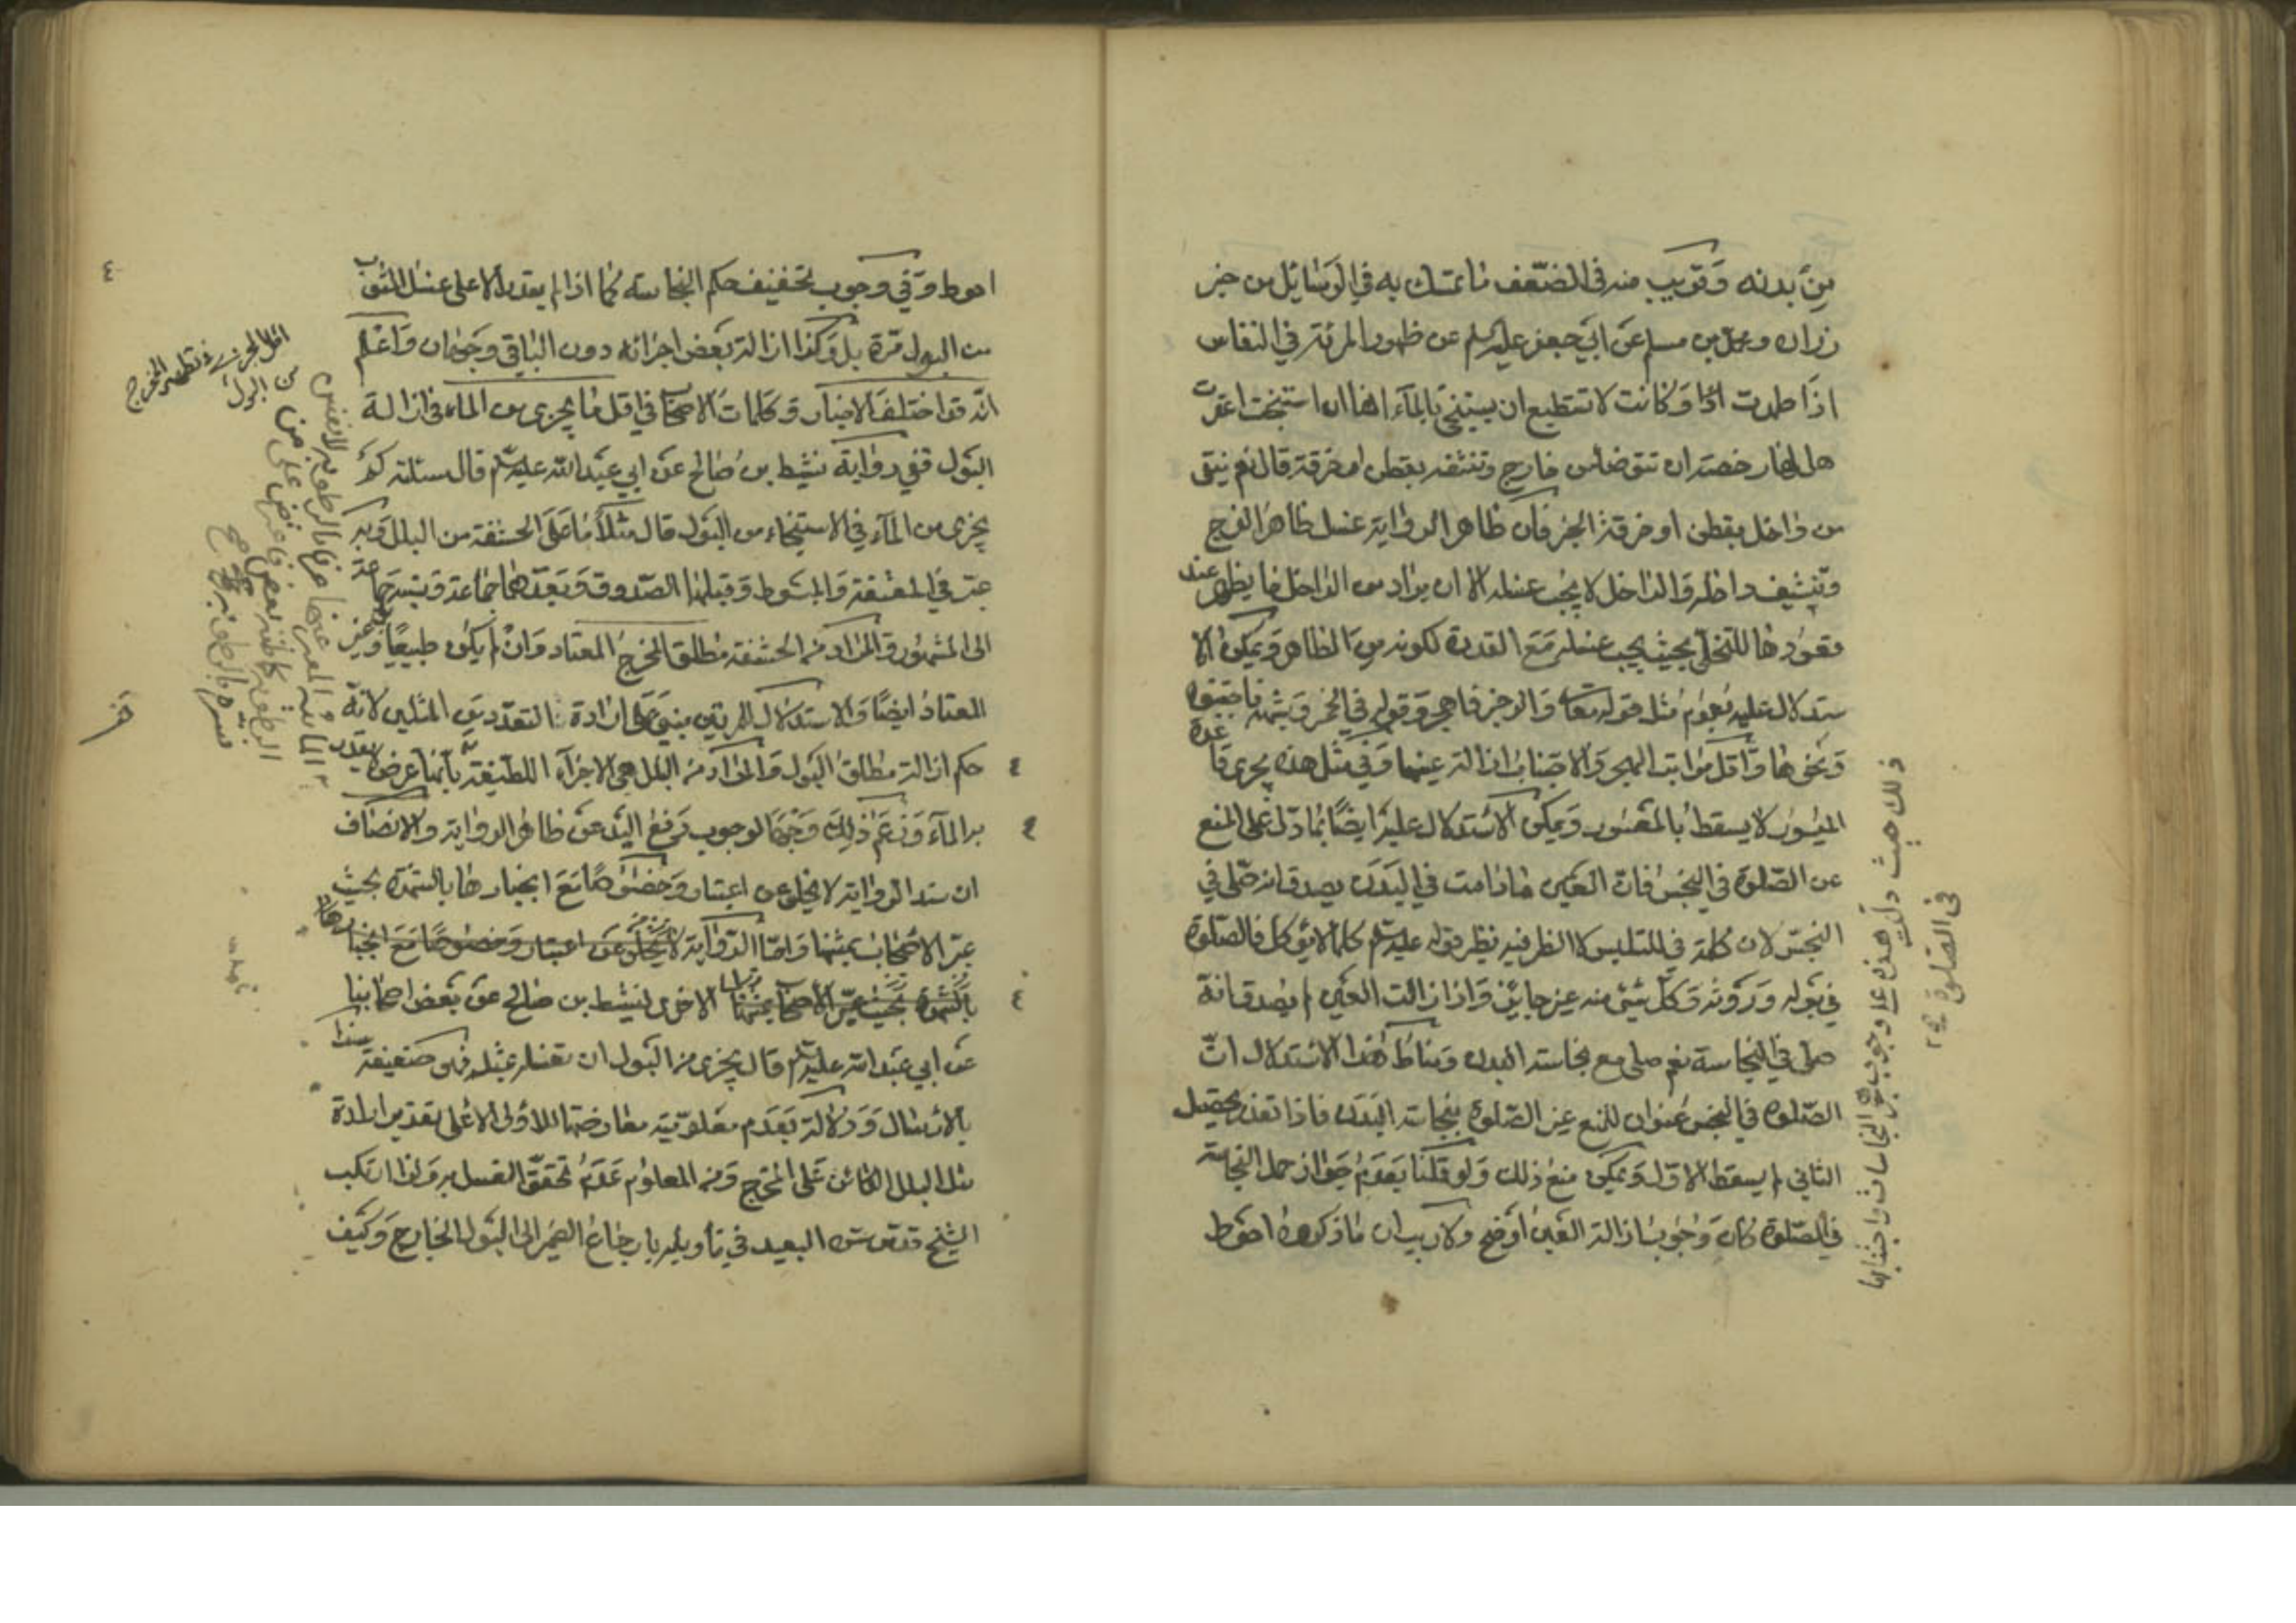 من بدنه وقريب منه في الضعف ما تمسك به في الوسايل من خبر
زراره و محمد بن مسلم عن ابي جعفر عليه السلم عن طهور المرئة في النفاس
اذا طهرت وكانت لا تستطيع ان يستنجى بالمآء انها ان استنجت اعقرت
هل لها رخصة ان تتوضأ من خارج وتنشفه بقطن او خرقة قال نعم تنقى
من داخل بقطن او خرقة الخبر فان ظاهر الرواية غسل ظاهر الفرج
وتنشيف داخله والداخل لا يجب غسله الا ان يراد من الداخل ما يظهر عند
قعودها للتخلى بحيث يجب غسله مع القدرة لكونه من الظاهر ويمكن الا
ستدلال عليه بعموم مثل قوله تعالى والرجز فاهجر وقوله في الخمر وشبهه فاجتنبوه
ونحوهما واقل مراتب الهجر والاجتناب ازالة عينها وفي مثل هذه يجرى قاعدة
الميسور لا يسقط بالمعسور ويمكن الاستدلال عليه ايضا بما دل على المنع
عن الصلوة في النجس فان العين ما دامت في البدن يصدق انه صلى في
النجس لان كلمة في للتلبس لا الظرفيه نظير قوله عليه السلم كلما لا يؤكل فالصلوة
في بوله وروثه وكل شئ منه غير جايز واذا زالت العين لم يصدق انه
صلى في النجاسة نعم صلى مع نجاسة البدن ومناط هذا الاستدلال ان
الصلوة في النجس عنوان للمنع غير الصلوة بنجاسة البدن فاذا تعذر تحصيل
الثاني لم يسقط الاول ويمكن منع ذلك ولو قلنا بعدم جواز حمل النجاسة
في الصلوة كان وجوب ازالة العين اوضح ولا ريب ان ما ذكروه احوط
ذلك حيث دلت هذه على وجوب النجاسات واجتنابها
في الصلوة
احوط وفي وجوب تخفيف حكم النجاسة كما اذا لم يقدر الا على غسل الثوب
من البول مرة بل وكذا ازالة بعض اجزائه دون الباقي وجهان واعلم
انه قد اختلف الاخبار وكلمات الاصحاب في اقل ما يجزى من الماء في ازالة
البول ففي رواية نشيط بن صالح عن ابي عبد الله عليه السلم قال سئلته كم
يجزى من المآء في الاستنجاء من البول قال مثلا ما على الحشفة من البلل وبه
عبر في المقنعة والمبسوط وقبلهما الصدوق وبعدهما جماعة ونسبه جماعة
الى المشهور والمراد من الحشفة مطلق المخرج المعتاد وان لم يكن طبيعيا وغير
المعتاد ايضا والاستدلال
حكم ازالة مطلق البول والمراد من البلل هي الاجزآء اللطيفة
به المآء وزعم ذلك وجها لوجوب رفع اليد عن ظاهر الرواية والانصاف
ان سند الرواية لا يخلو عن اعتبار وخصوصا مع انجبارها بالشهرة بحيث
عبر الاصحاب بمتنها واما الرواية لا يخلو عن اعتبار وخصوصا مع انجبارها
بالشهرة بحيث عبر الاصحاب بمتنها الاخرى لنشيط بن صالح عن بعض اصحابنا
عن ابي عبد الله عليه السلم قال يجزى من البول ان تغسله بمثله فهى ضعيفة سندا
بالارسال ودلالة بعدم معلومية معارضتها للاولى الا على تقدير ارادة
مثل البلل الكائن على المخرج ومن المعلوم عدم تحقق الغسل به ولذا ارتكب
الشيخ قدس سره البعيد في تأويله بارجاع الضمير الى البول الخارج وكيف
اقل المجزى في تطهير المخرج
من البول
٤